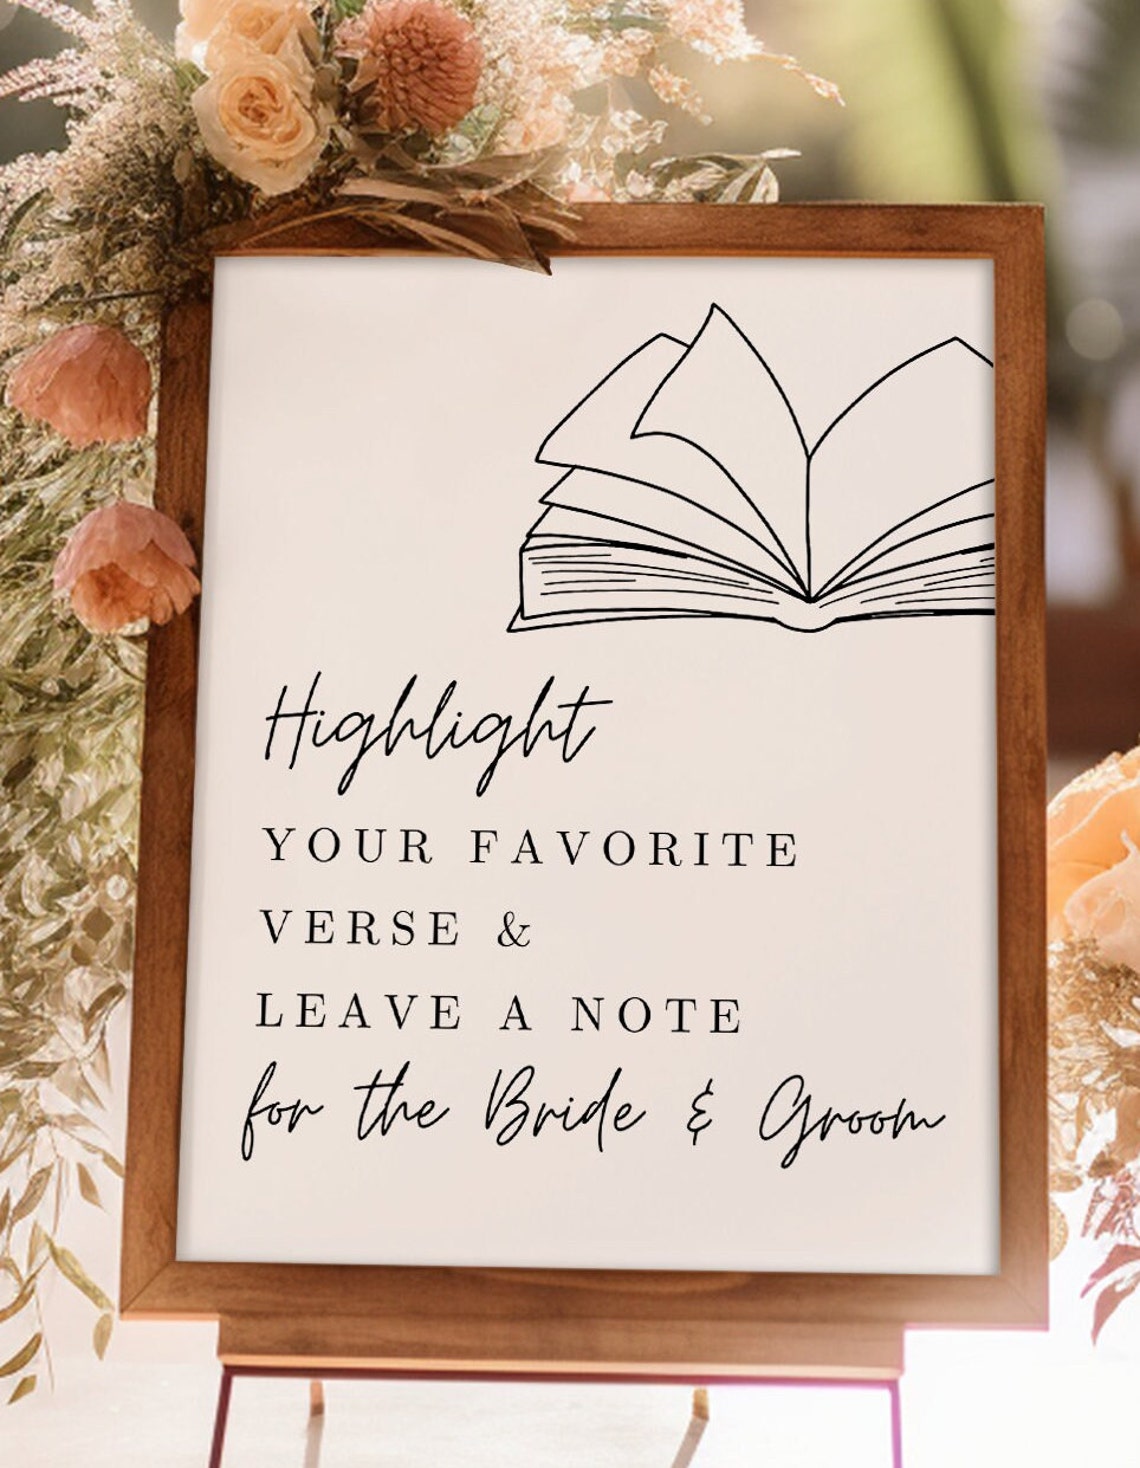 Highlight
YOUR FAVORITE
VERSE &
LEAVE A NOTE
for the Bride & Groom